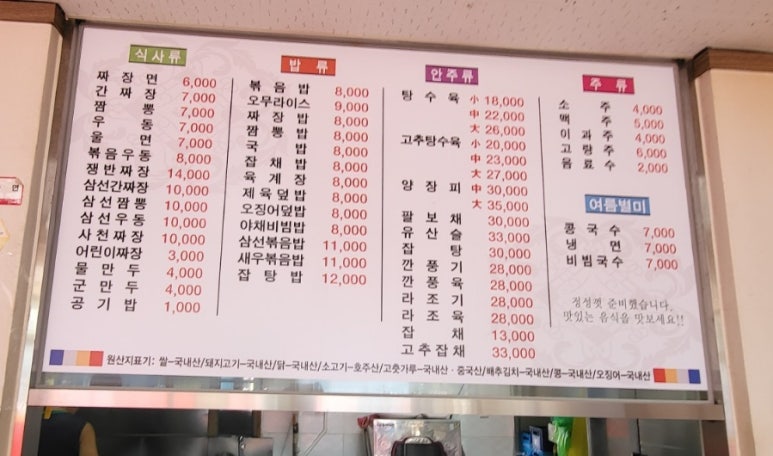 식사류
짜장면 6,000
간짜장 7,000
짬뽕 7,000
우동 7,000
울면 7,000
볶음우동 8,000
쟁반짜장 14,000
삼선간짜장 10,000
삼선짬뽕 10,000
삼선우동 10,000
사천짜장 10,000
어린이짜장 3,000
물만두 4,000
군만두 4,000
공기밥 1,000
밥류
볶음밥 8,000
오무라이스 9,000
짜장밥 8,000
짬뽕밥 8,000
국밥 8,000
잡채밥 8,000
육계장 8,000
제육덮밥 8,000
오징어덮밥 8,000
야채비빔밥 8,000
삼선볶음밥 11,000
새우볶음밥 11,000
잡탕밥 12,000
안주류
탕수육 小 18,000
中 22,000
大 26,000
고추탕수육 小 20,000
中 23,000
大 27,000
양장피 中 30,000
大 35,000
팔보채 30,000
유산슬 33,000
잡탕 30,000
깐풍기 28,000
깐풍육 28,000
라조기 28,000
라조육 28,000
잡채 13,000
고추잡채 33,000
주류
소주 4,000
맥주 5,000
이과주 4,000
고량주 6,000
음료수 2,000
여름별미
콩국수 7,000
냉면 7,000
비빔국수 7,000
정성껏 준비했습니다.
맛있는 음식을 맛보세요!!
원산지표기: 쌀-국내산/돼지고기-국내산/닭-국내산/소고기-호주산/고춧가루-국내산·중국산/배추김치-국내산/콩-국내산/오징어-국내산